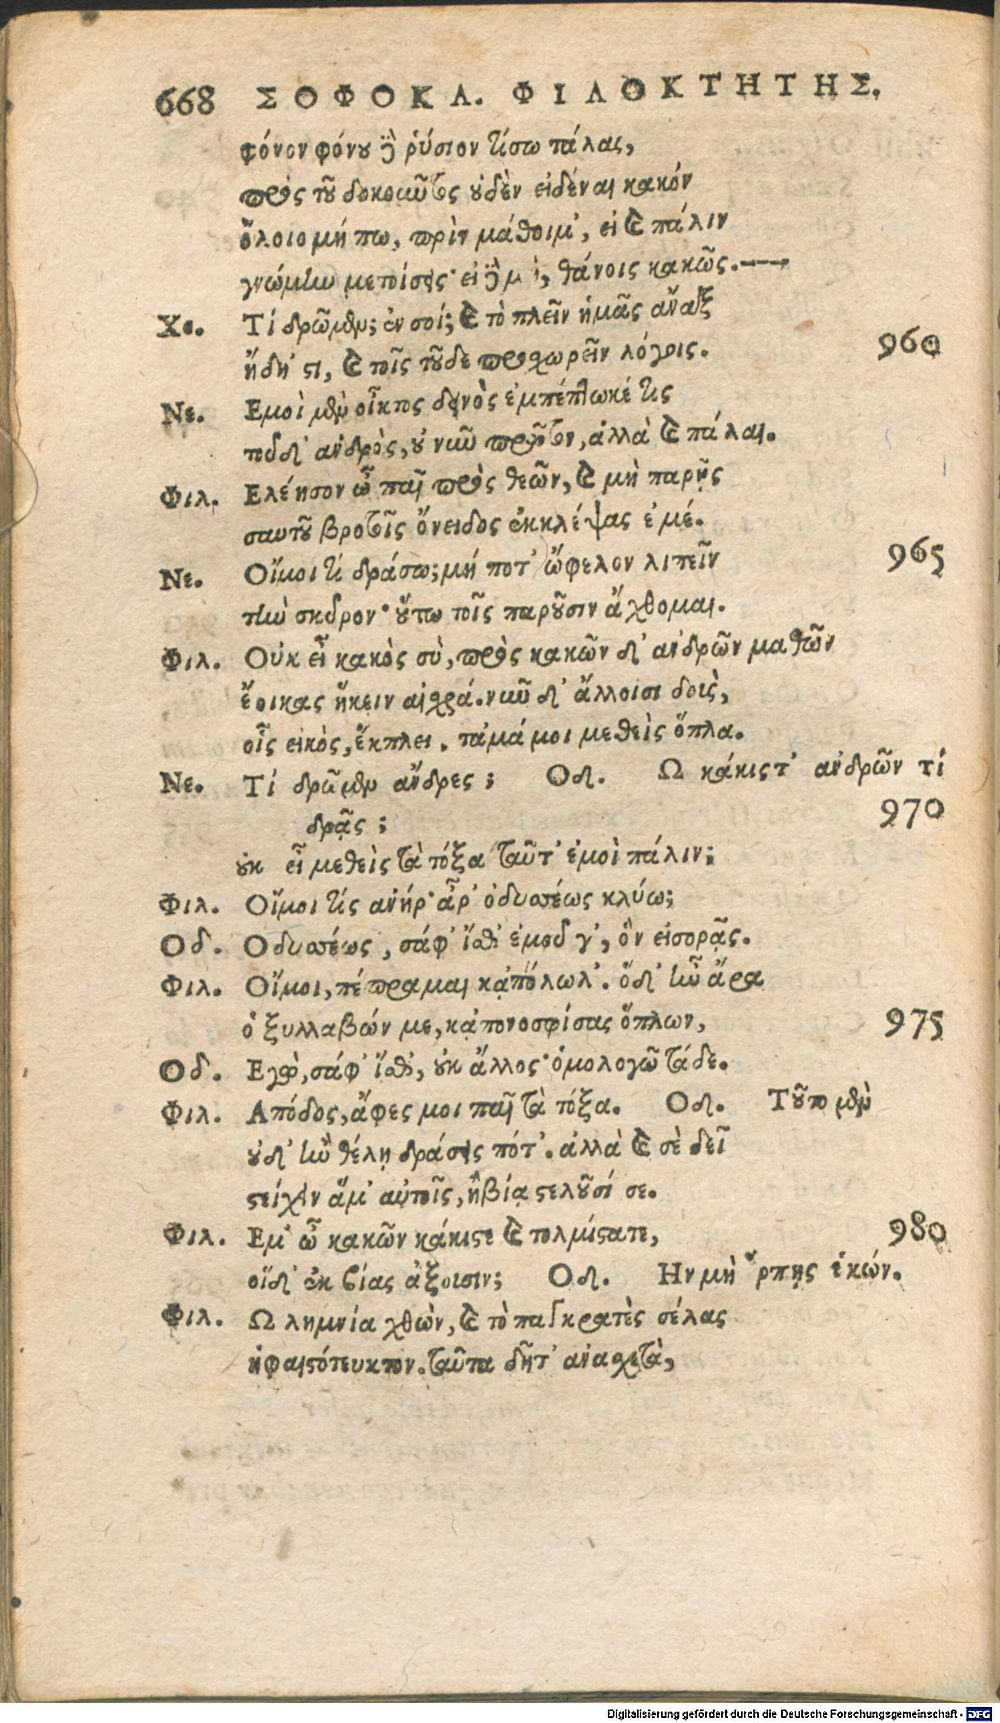 668 ΣΟΦΟΚΛ. ΦΙΛΟΚΤΗΤΗΣ.
φόνον φόνου δὲ ῥύσιον τίσω τάλας,
πρὸς τοῦ δοκοῦντος οὐδὲν εἰδέναι κακόν
ὄλοιο μήπω, πρὶν μάθοιμ', εἰ καὶ πάλιν
γνώμην μετοίσεις· εἰ δὲ μὴ, θάνοις κακῶς.—
Χο. Τί δρῶμεν; ἐν σοί; καὶ τὸ πλεῖν ἡμᾶς ἄναξ
ἤδη 'στι, καὶ τοῖς τοῦδε προχωρεῖν λόγοις. 960
Νε. Εμοὶ μὲν οἶκτος δεινὸς ἐμπέπτωκέ τις
τοῦδ' ἀνδρὸς, οὐ νῦν πρῶτον, ἀλλὰ καὶ πάλαι.
Φιλ. Ελέησον ὦ παῖ πρὸς θεῶν, καὶ μὴ παρῇς
σαυτοῦ βροτοῖς ὄνειδος ἐκκλέψας ἐμέ.
Νε. Οἴμοι τί δράσω; μή ποτ' ὤφελον λιπεῖν 965
τὴν σκῦρον· οὕτω τοῖς παροῦσιν ἄχθομαι.
Φιλ. Οὐκ εἶ κακὸς σὺ, πρὸς κακῶν δ' ἀνδρῶν μαθῶν
ἔοικας ἥκειν αἰσχρά. νῦν δ' ἄλλοισι δοὺς,
οἷς εἰκὸς, ἔκπλει. τἀμά μοι μεθεὶς ὅπλα.
Νε. Τί δρῶμεν ἄνδρες; Οδ. Ω κάκιστ' ἀνδρῶν τί
δρᾷς; 970
οὐκ εἶ μεθεὶς τὰ τόξα ταῦτ' ἐμοὶ πάλιν;
Φιλ. Οἴμοι τίς ἀνήρ· ἆρ' ὀδυσσέως κλύω;
Οδ. Οδυσσέως, σάφ' ἴσθ' ἐμοῦ γ', ὃν εἰσορᾷς.
Φιλ. Οἴμοι, πέπραμαι κἀπόλωλ'. ὅδ' ἦν ἄρα
ὁ ξυλλαβών με, κἀπονοσφίσας ὅπλων, 975
Οδ. Εγὼ, σάφ' ἴσθ', οὐκ ἄλλος· ὁμολογῶ τάδε.
Φιλ. Απόδος, ἄφες μοι παῖ τὰ τόξα. Οδ. Τοῦτο μὲν
οὐδ' ἢν θέλῃ δράσεις πότ'. ἀλλὰ καὶ σὲ δεῖ
στείχειν ἅμ' αὐτοῖς, ἢ βίᾳ στελοῦσί σε.
Φιλ. Εμ' ὦ κακῶν κάκιστε καὶ τολμίστατε, 980
οἵδ' ἐκ βίας ἄξοισιν; Οδ. Ην μὴ ἕρπῃς ἑκών.
Φιλ. Ω λημνία χθὼν, καὶ τὸ παγκρατὲς σέλας
ἡφαιστότευκτον. ταῦτα δῆτ' ἀνασχετὰ,
Digitalisierung gefördert durch die Deutsche Forschungsgemeinschaft - DFG